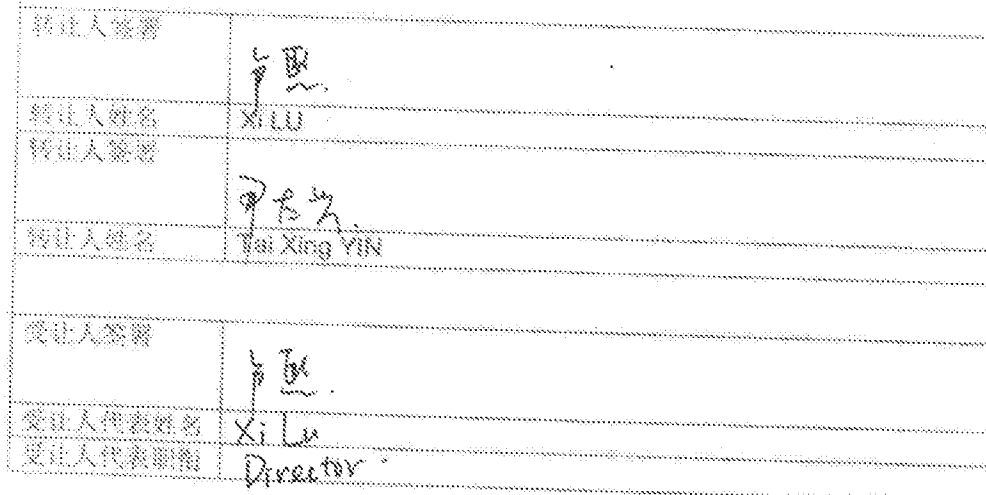 转让人签署
卢熙
转让人姓名 Xi LU
转让人签署
转让人姓名 Tai Xing YIN
受让人签署
卢熙
受让人代表姓名 Xi Lu
受让人代表职衔 Director